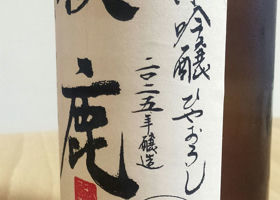 吟醸ひやおろし
二〇二五年醸造
鹿